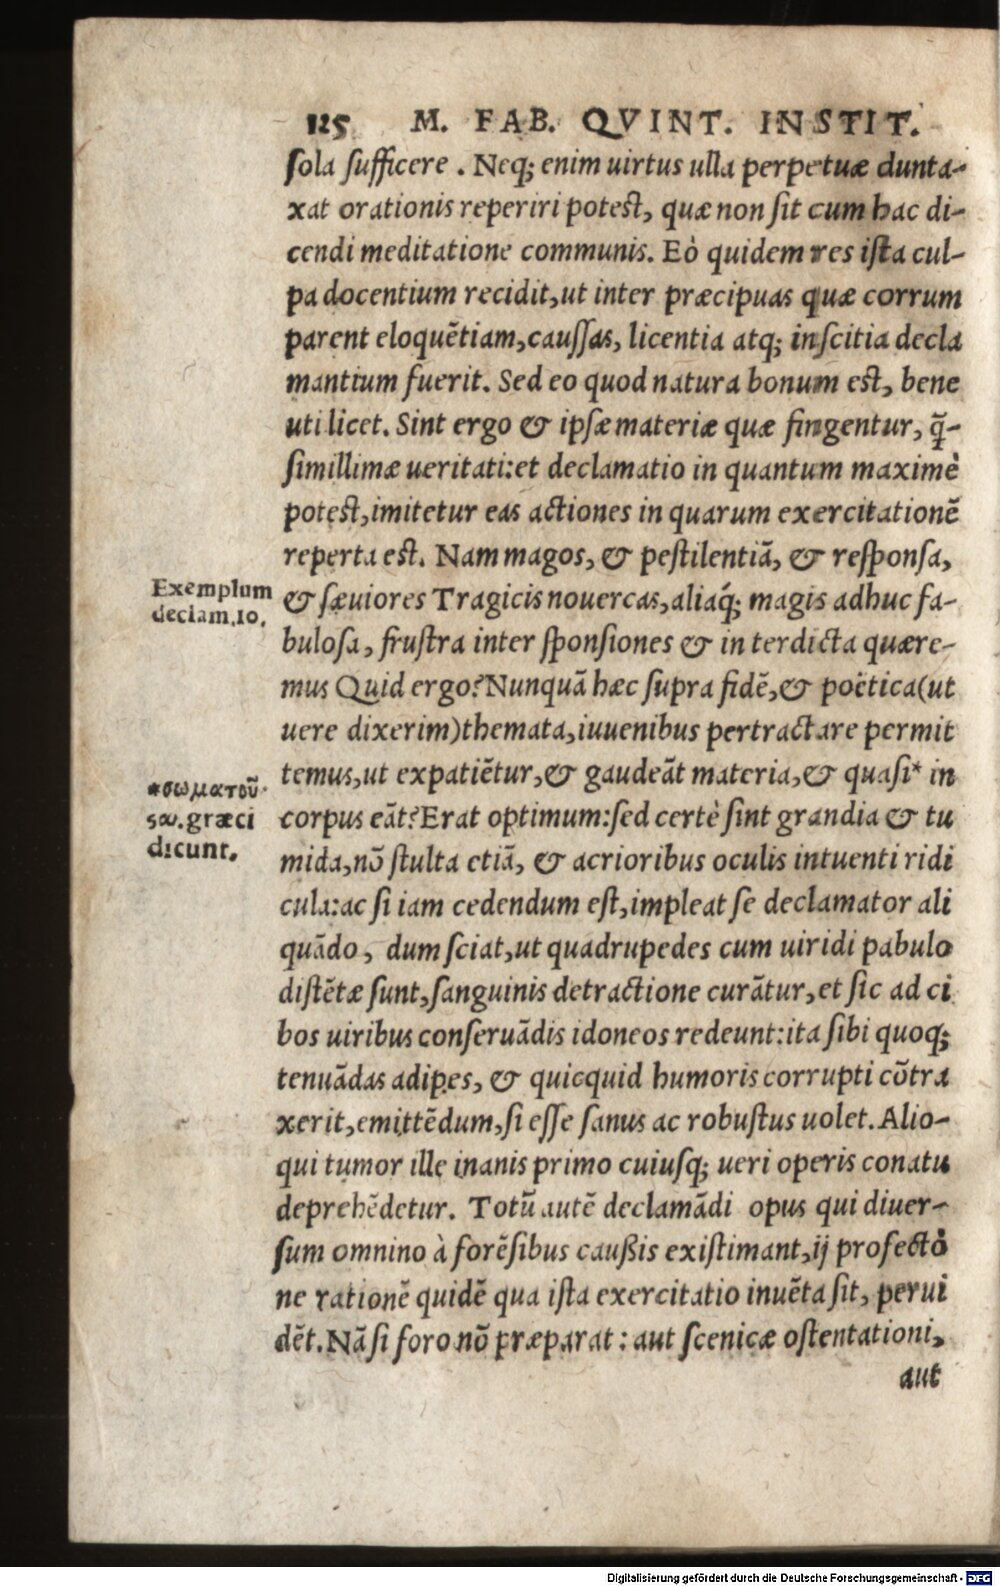 125 M. FAB. QVINT. INSTIT.
sola sufficere . Neq; enim uirtus ulla perpetuæ dunta-
xat orationis reperiri potest, quæ non sit cum hac di-
cendi meditatione communis. Eò quidem res ista cul-
pa docentium recidit, ut inter præcipuas quæ corrum
parent eloquētiam, caussas, licentia atq; inscitia decla
mantium fuerit. Sed eo quod natura bonum est, bene
uti licet. Sint ergo & ipsæ materiæ quæ fingentur, q̃-
simillimæ ueritati: et declamatio in quantum maximè
potest, imitetur eas actiones in quarum exercitationē
reperta est. Nam magos, & pestilentiā, & responsa,
Exemplum
declam.10.
& sæuiores Tragicis nouercas, aliaq́; magis adhuc fa-
bulosa, frustra inter sponsiones & in terdicta quære-
mus Quid ergo? Nunquā hæc supra fidē, & poëtica (ut
uere dixerim) themata, iuuenibus pertractare permit
temus, ut expatiētur, & gaudeāt materia, & quasi* in
*σωματοῦ·
σαι. græci
dicunt.
corpus eāt? Erat optimum: sed certè sint grandia & tu
mida, nō stulta etiā, & acrioribus oculis intuenti ridi
cula: ac si iam cedendum est, impleat se declamator ali
quādo, dum sciat, ut quadrupedes cum uiridi pabulo
distētæ sunt, sanguinis detractione curātur, et sic ad ci
bos uiribus conseruādis idoneos redeunt: ita sibi quoq;
tenuādas adipes, & quicquid humoris corrupti cōtra
xerit, emittēdum, si esse sanus ac robustus uolet. Alio-
qui tumor ille inanis primo cuiusq; ueri operis conatu
deprehēdetur. Totū autē declamādi opus qui diuer-
sum omnino à forēsibus caußis existimant, ij profectò
ne rationē quidē qua ista exercitatio inuēta sit, perui
dēt. Nā si foro nō præparat: aut scenicæ ostentationi,
aut
Digitalisierung gefördert durch die Deutsche Forschungsgemeinschaft - DFG